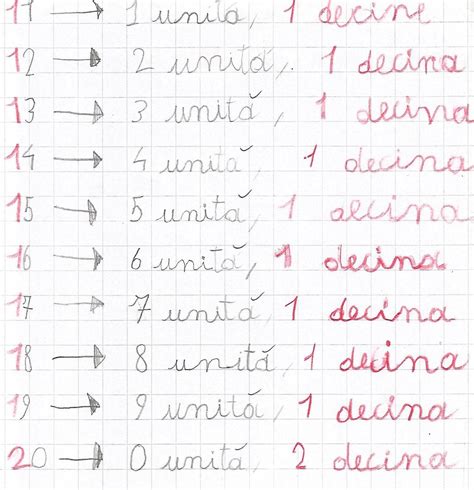 11 → 1 unità, 1 decine
12 → 2 unità, 1 decina
13 → 3 unità, 1 decina
14 → 4 unità, 1 decina
15 → 5 unità, 1 decina
16 → 6 unità, 1 decina
17 → 7 unità, 1 decina
18 → 8 unità, 1 decina
19 → 9 unità, 1 decina
20 → 0 unità, 2 decina